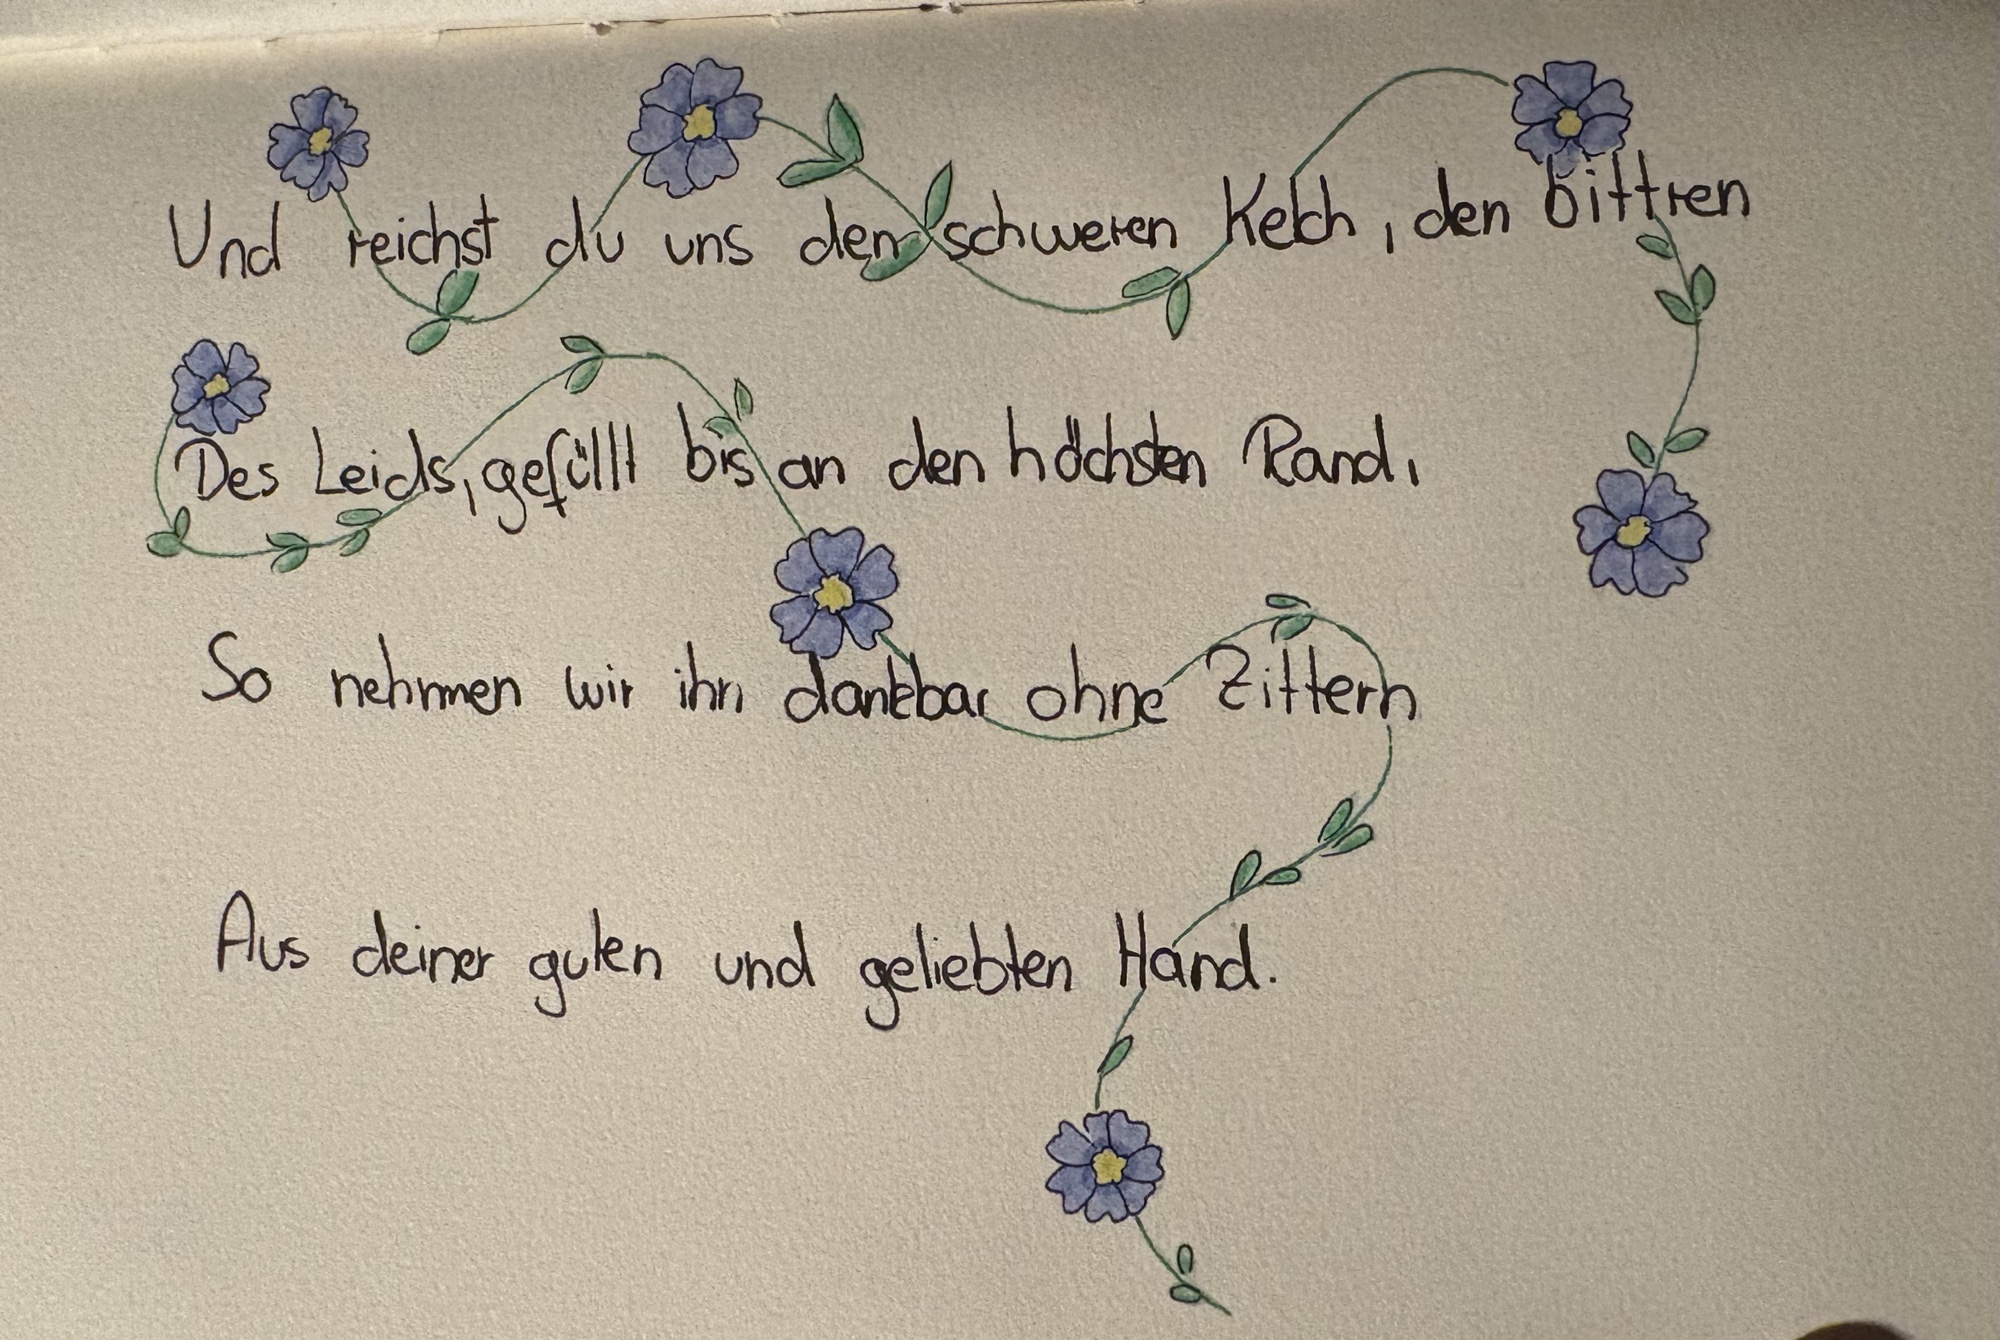 Und reichst du uns den schweren Kelch, den bittren
Des Leids, gefüllt bis an den höchsten Rand,
So nehmen wir ihn dankbar ohne Zittern
Aus deiner guten und geliebten Hand.